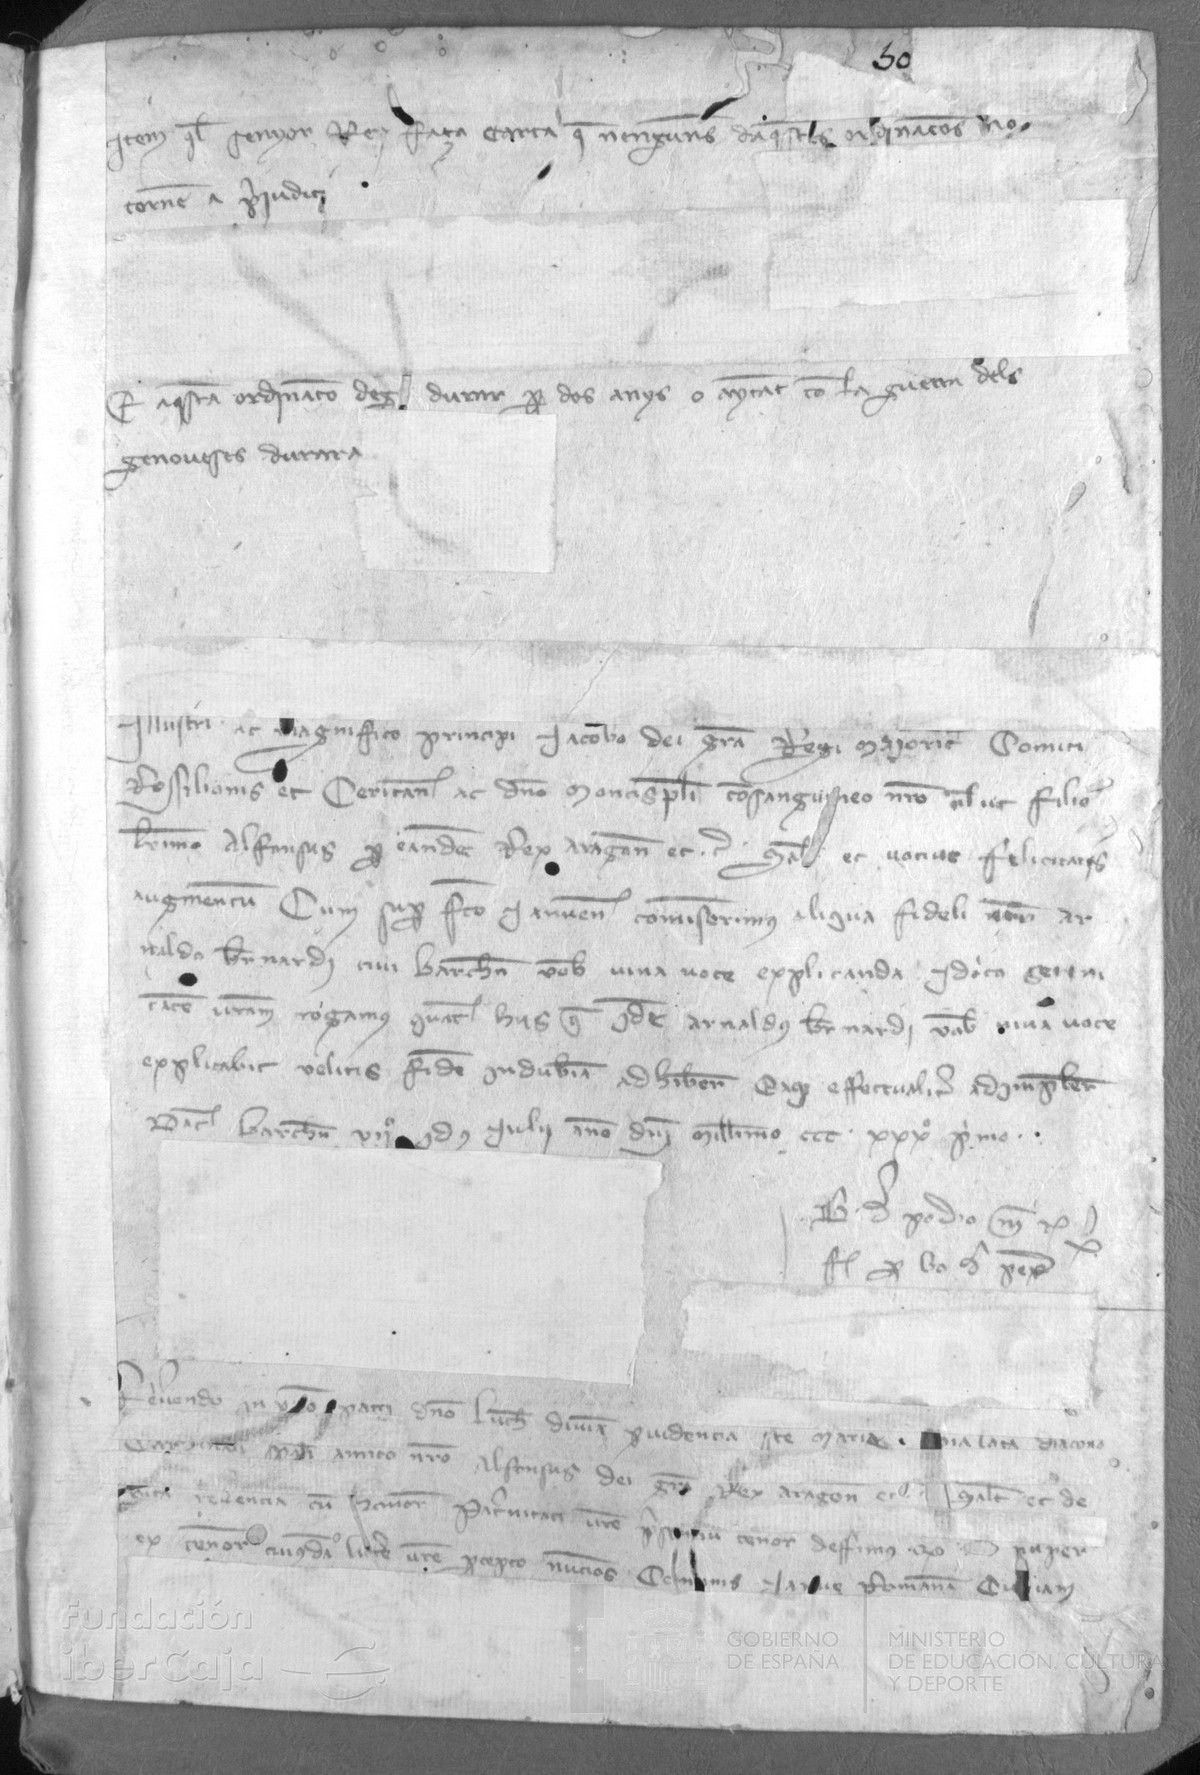 50
Item ql senyor Rey faça carta q nenguns daqsts ordinacos no
torne a pjudici
E aqsta ordinaco deg durar p dos anys o aytat co la guerra dels
genoveses durara
Illustri ac magnifico principi Jacobo dei gra Regi Majoric Comiti
Rossilionis et Ceritan ac dno Montispli consanguineo nro ut filio
krimo Alfonsus p eande Rex Aragon etc Sal et votive felicitatis
augmentu Cum sup fco Januen comiserimus aliqua fideli nro Ar
naldo Bernardi civi Barchn vob viva voce explicanda Idcirco sereni
tate vram rogamus quat hiis q ide Arnaldus Bernardi vob viva voce
explicabit velitis fide indubia adhiber eaq effectualit adimpler
Dat Barchn vij idus Julii ano dni millimo ccc xxx pmo
B d podio m R
p
Revendo in xpo patri dno Luch divia pvidencia ste Marie in via lata diacono
Cardinali amico nro Alfonsus dei gra Rex Aragon etc Salt et de
revencia cu honor Patnitati vre tenor nuper
ex tenor cuiusda litte vre pcepto nucios Comunis Janue Romana Curiam
Fundación
iberCaja
GOBIERNO
DE ESPAÑA
MINISTERIO
DE EDUCACIÓN, CULTURA
Y DEPORTE